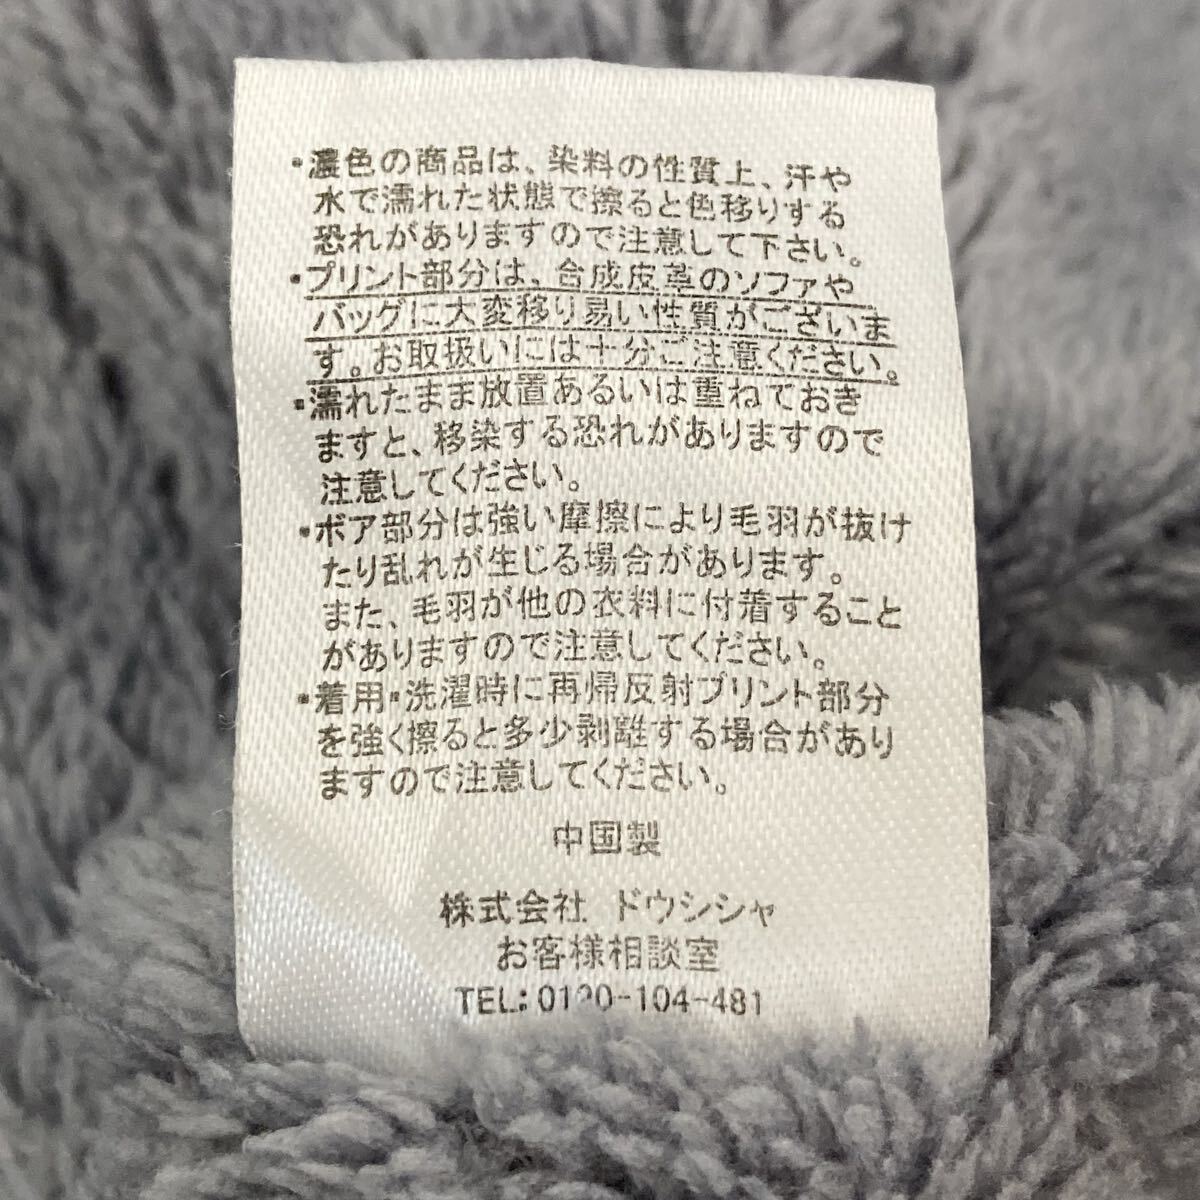 ・濃色の商品は、染料の性質上、汗や
水で濡れた状態で擦ると色移りする
恐れがありますので注意して下さい。
・プリント部分は、合成皮革のソファや
バッグに大変移り易い性質がございま
す。お取扱いには十分ご注意ください。
・濡れたまま放置あるいは重ねておき
ますと、移染する恐れがありますので
注意してください。
・ボア部分は強い摩擦により毛羽が抜け
たり乱れが生じる場合があります。
また、毛羽が他の衣料に付着すること
がありますので注意してください。
・着用・洗濯時に再帰反射プリント部分
を強く擦ると多少剥離する場合があり
ますので注意してください。
中国製
株式会社 ドウシシャ
お客様相談室
TEL:0120-104-481